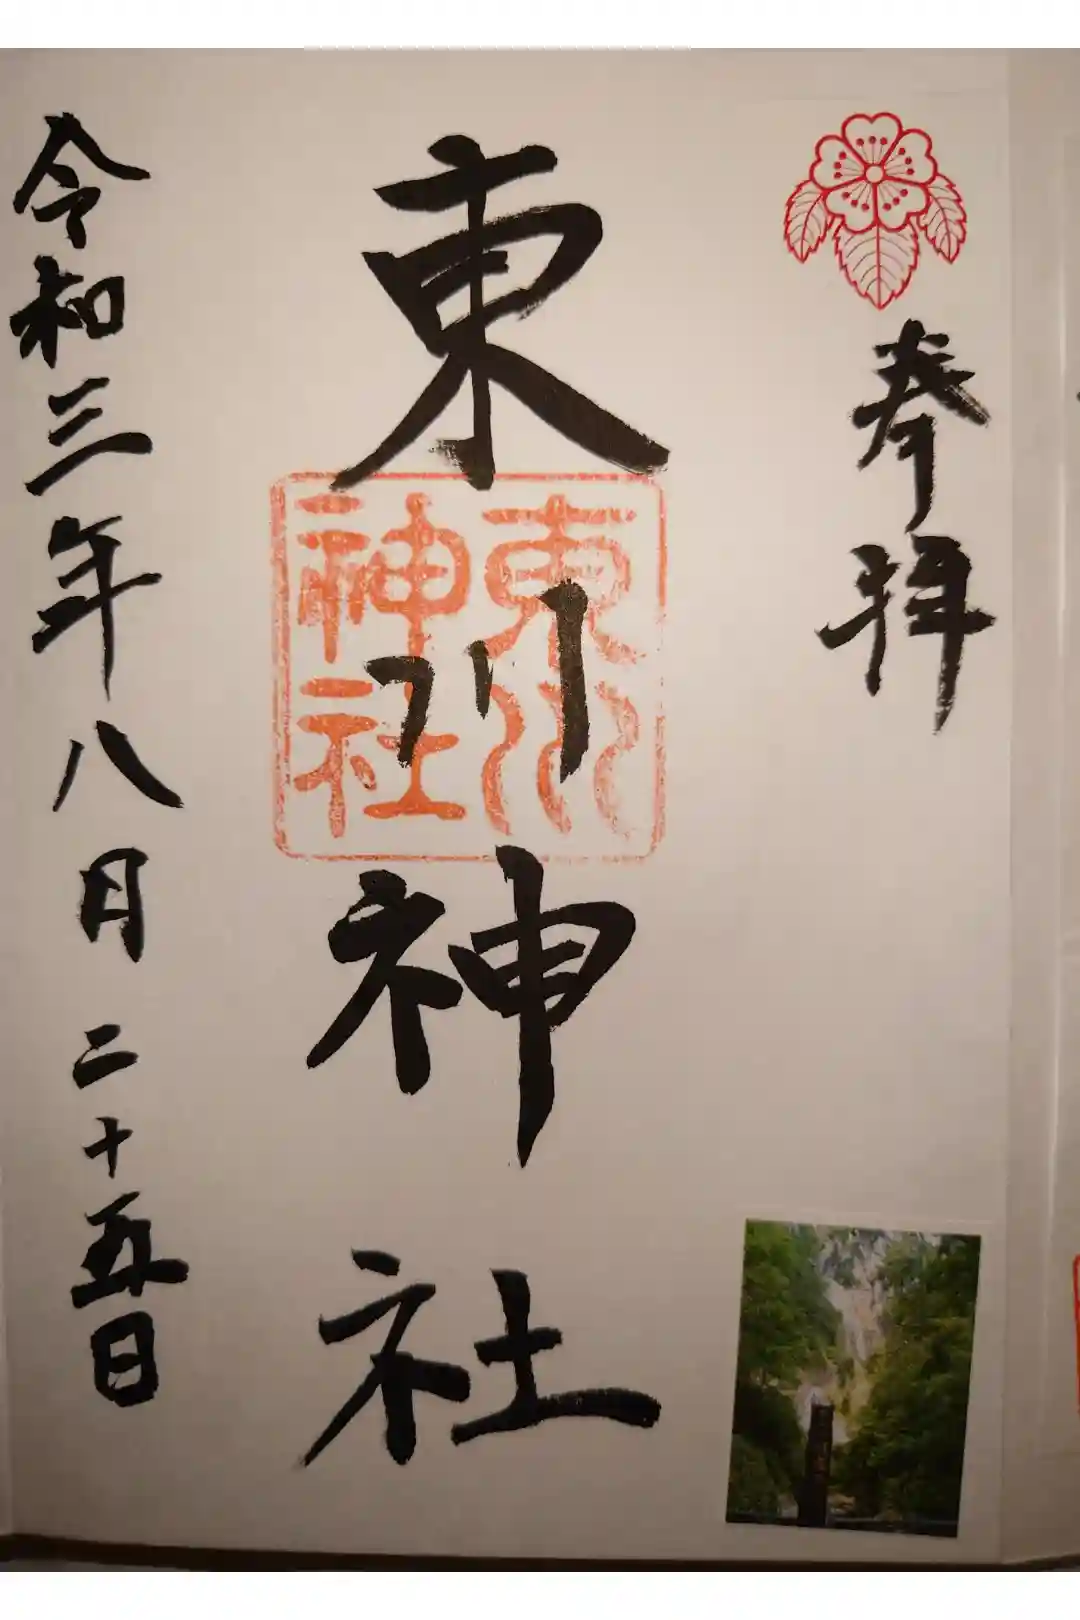 奉拝
東川神社
東川
神社
令和三年八月二十五日